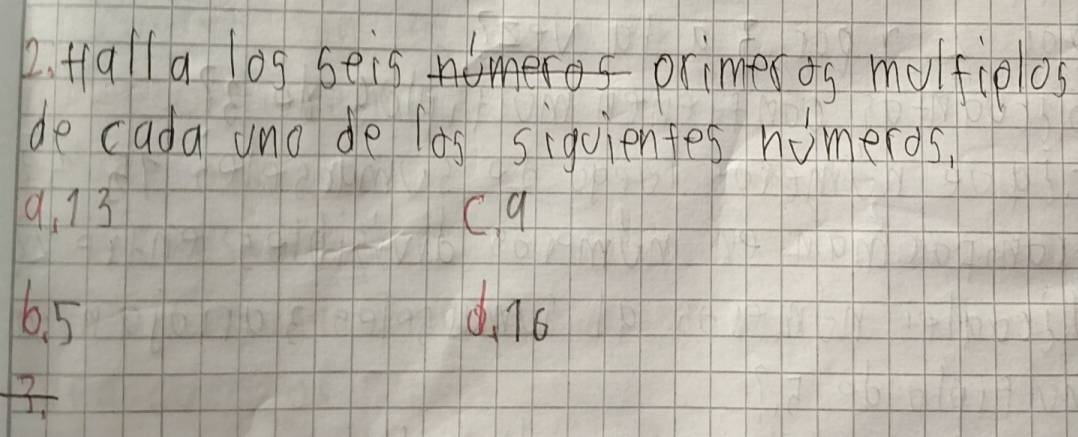 2. Halla los seis números primeros multiplos
de cada uno de los siguientes números.
a. 13 c. 9
b. 5 d. 16
3.